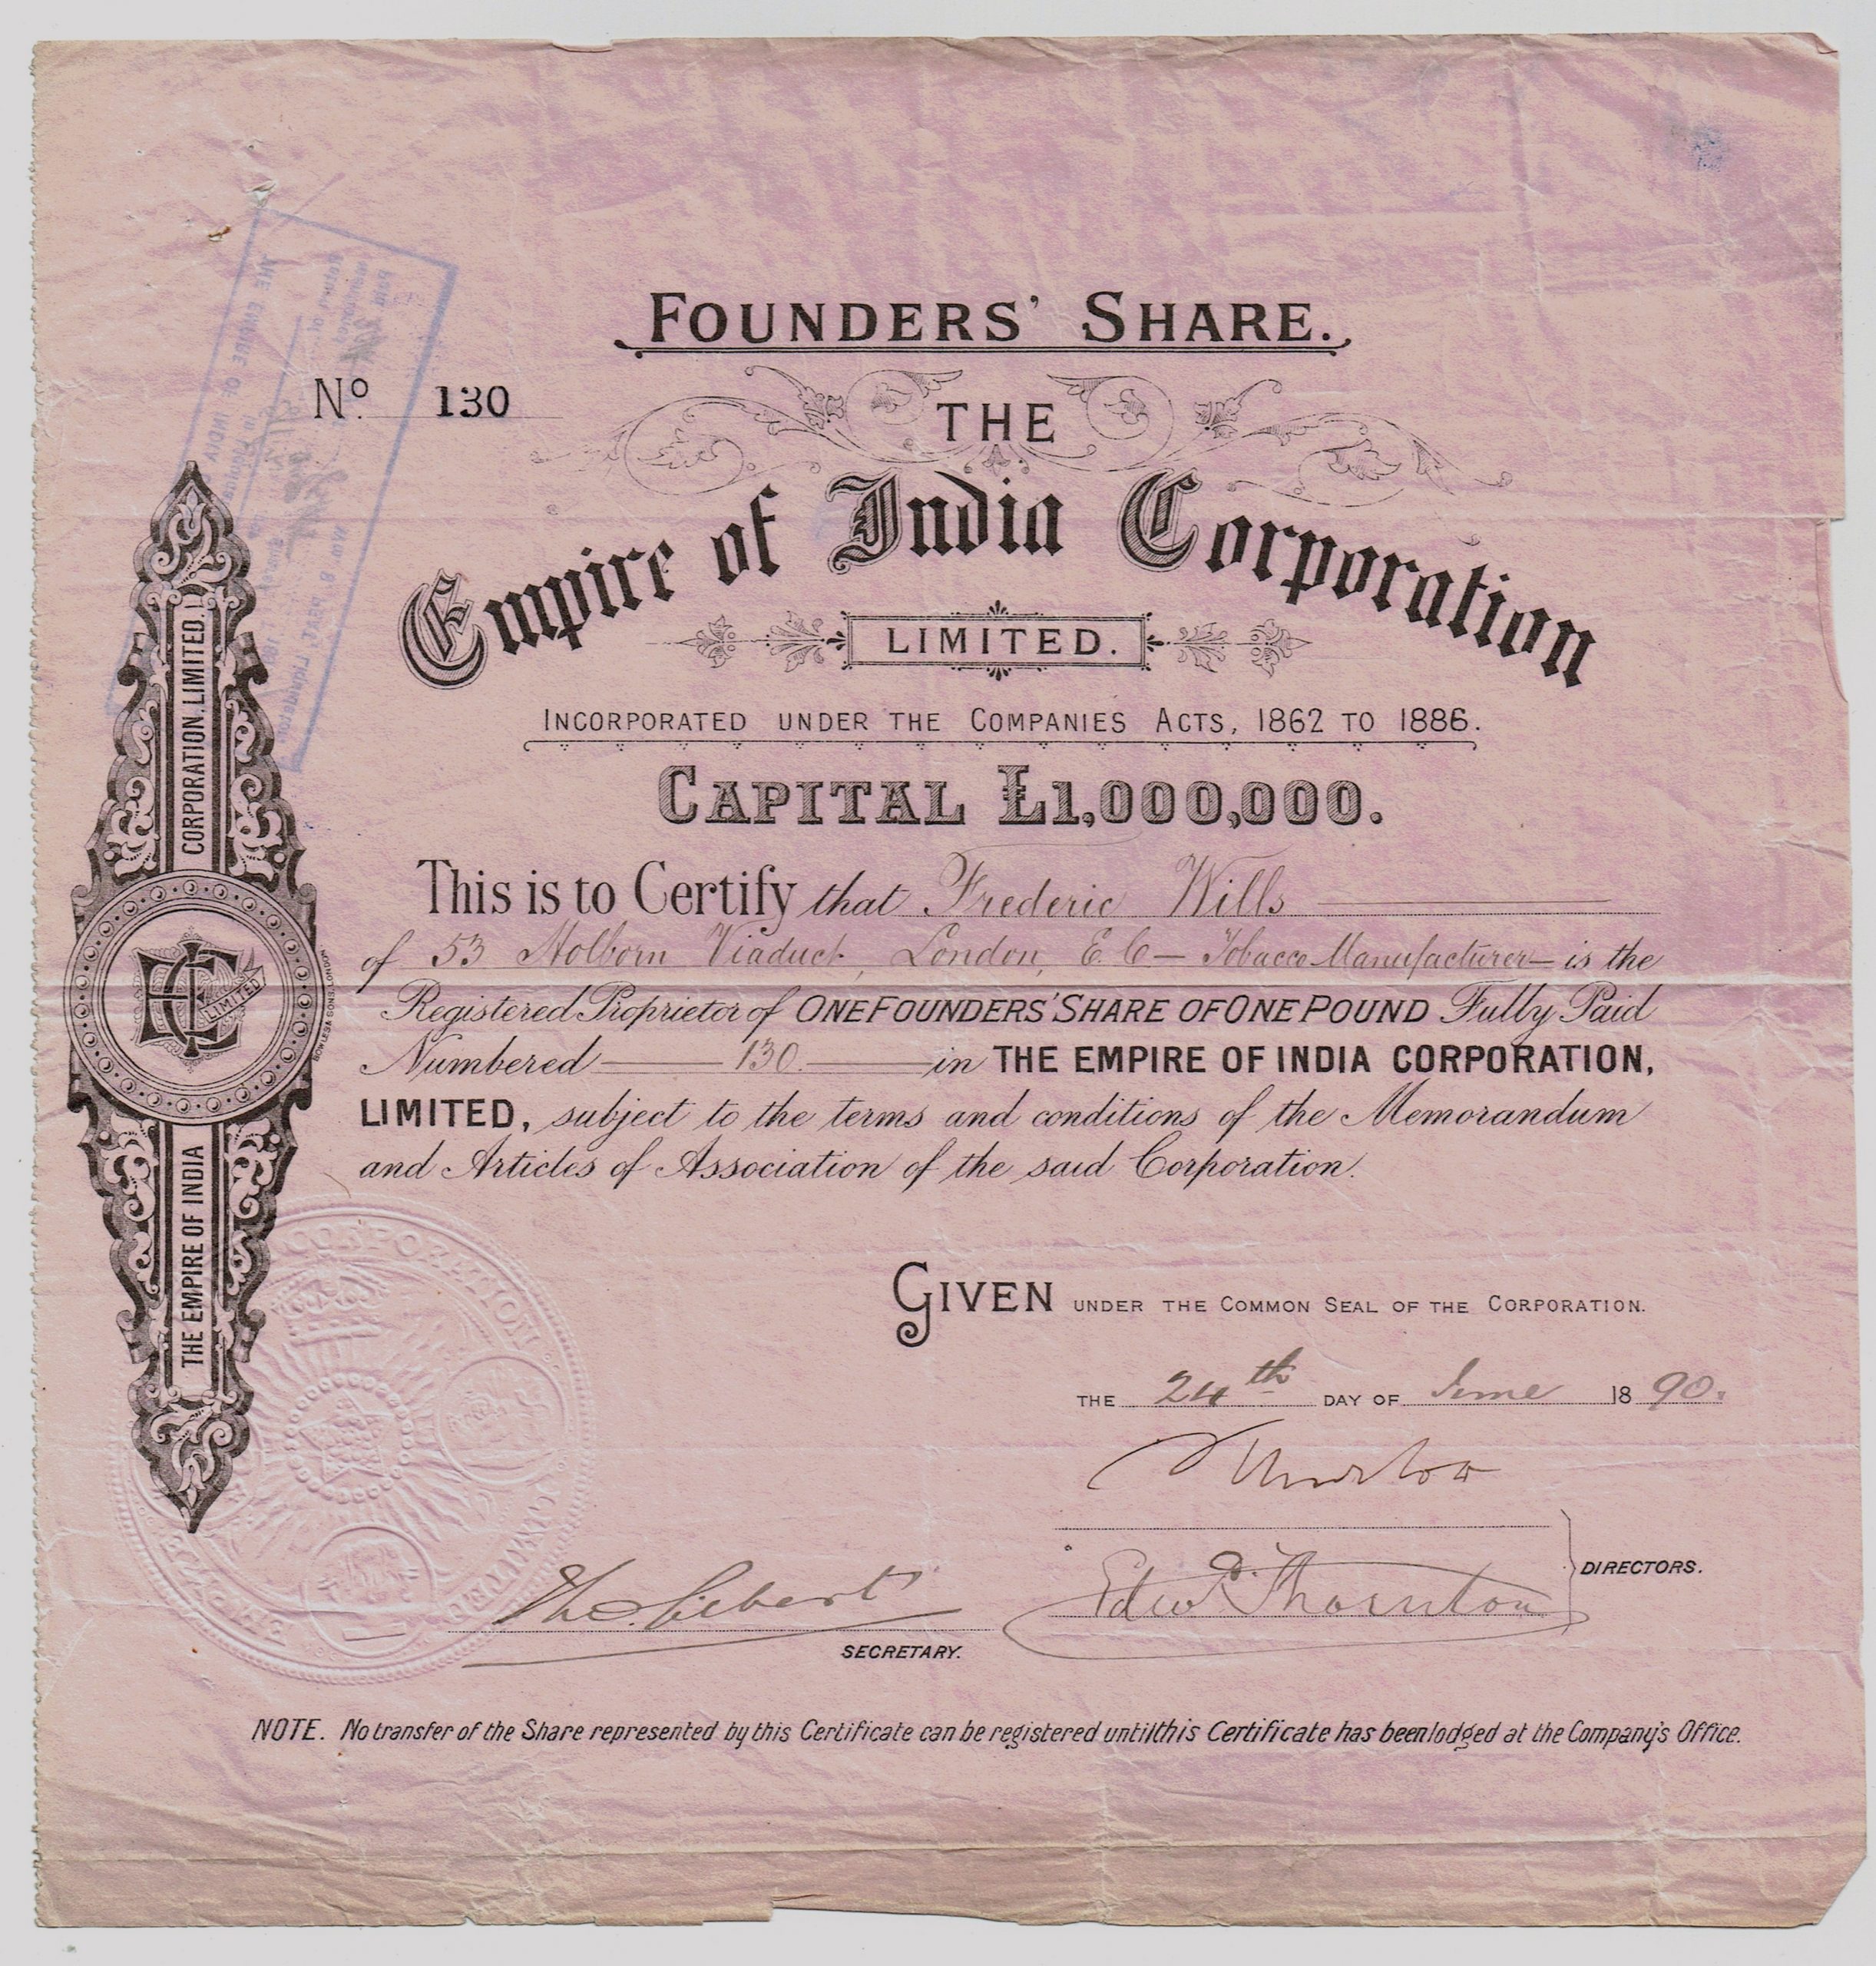 FOUNDERS' SHARE.
No. 130
THE
Empire of India Corporation
LIMITED.
INCORPORATED UNDER THE COMPANIES ACTS, 1862 TO 1886.
CAPITAL £1,000,000.
This is to Certify that Frederic Wills
of 53 Holborn Viaduct, London, E.C — Tobacco Manufacturer — is the
Registered Proprietor of ONE FOUNDERS' SHARE OF ONE POUND Fully Paid
Numbered 130 in THE EMPIRE OF INDIA CORPORATION,
LIMITED, subject to the terms and conditions of the Memorandum
and Articles of Association of the said Corporation.
GIVEN UNDER THE COMMON SEAL OF THE CORPORATION.
THE 24th DAY OF June 1890.
Edwd Thornton
DIRECTORS.
SECRETARY.
NOTE. No transfer of the Share represented by this Certificate can be registered until this Certificate has been lodged at the Company's Office.
THE EMPIRE OF INDIA CORPORATION, LIMITED.
LIMITED
CORPORATION
THE EMPIRE OF INDIA